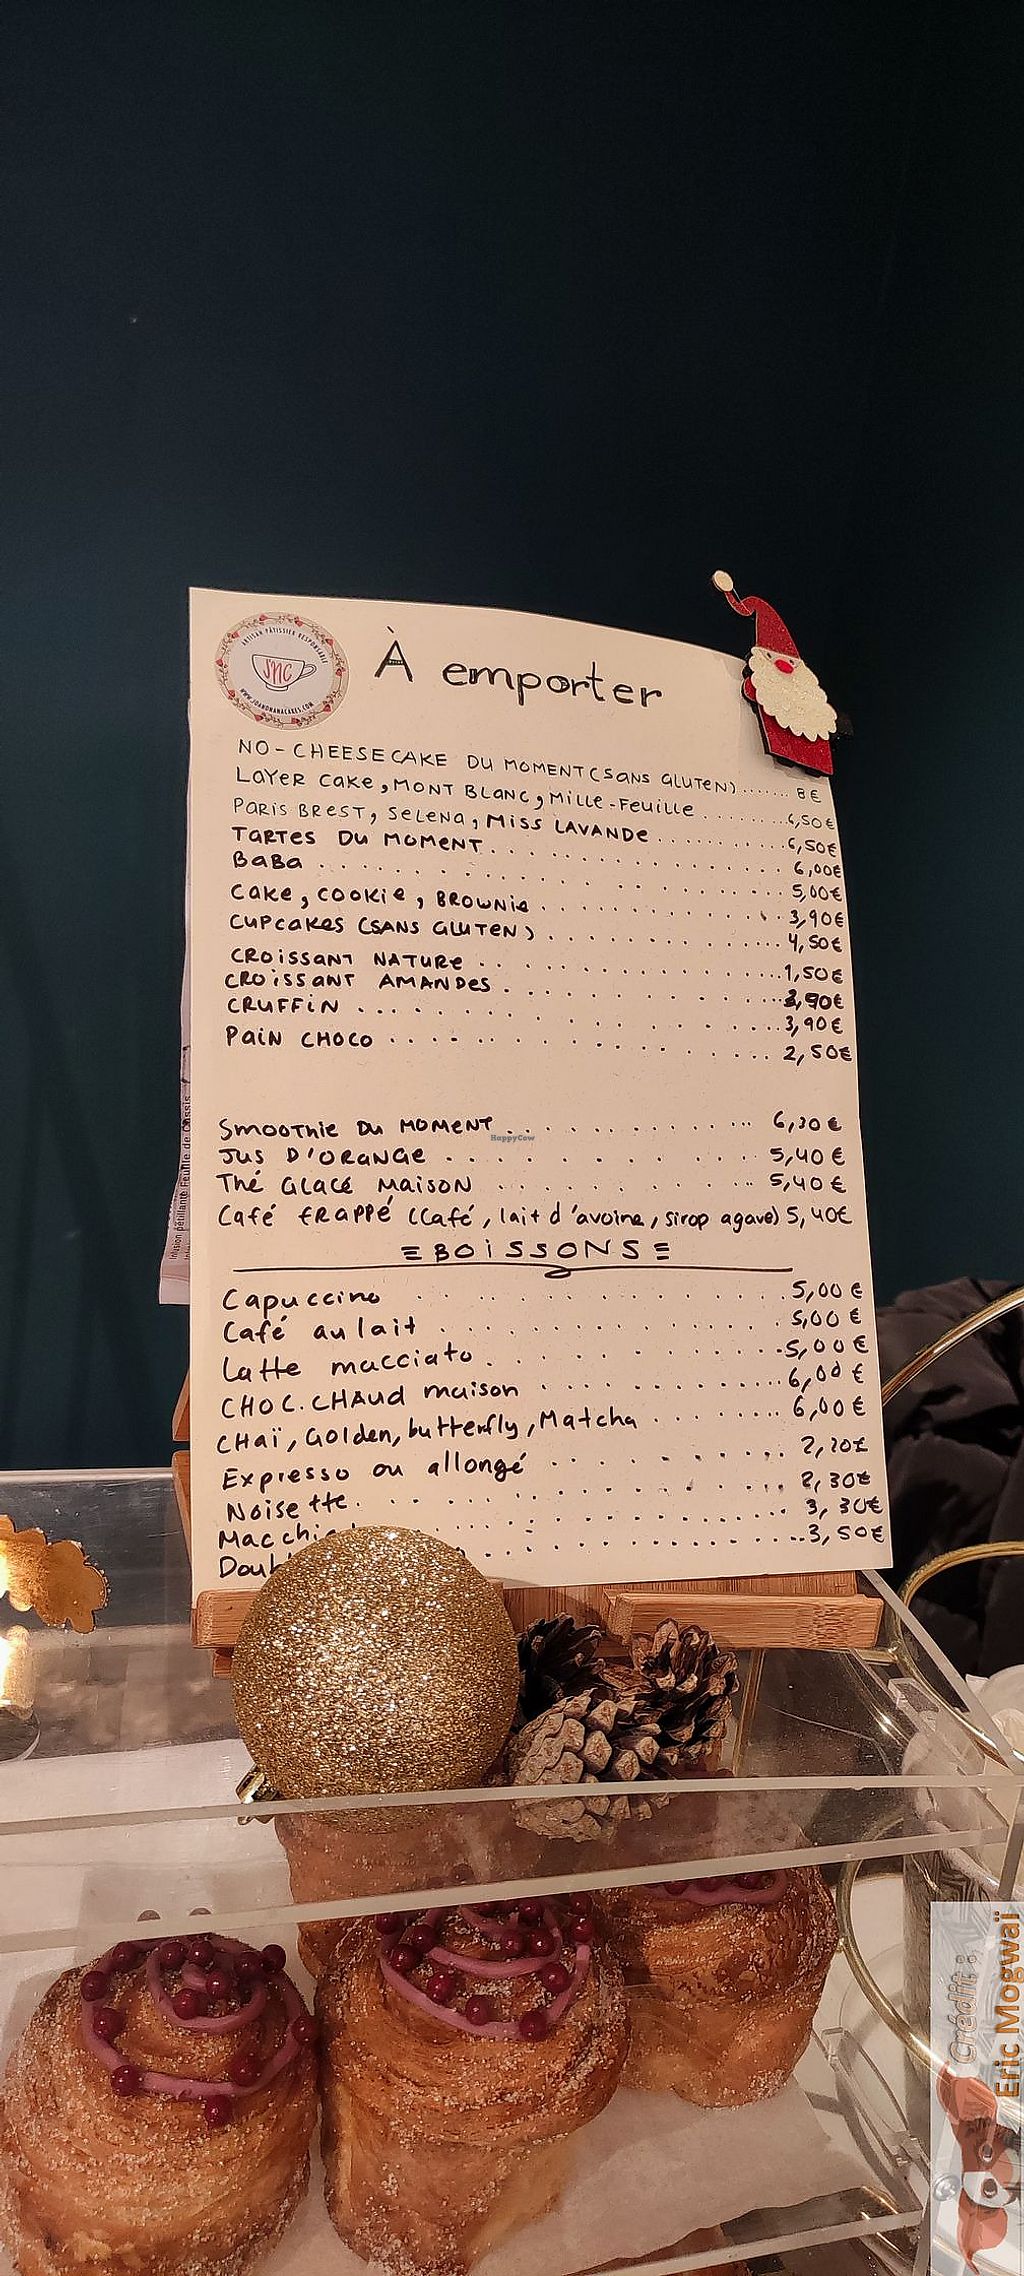 ARTISAN PÂTISSIER RESPONSABLE
JNC
WWW.JOANDNANACAKES.COM
À emporter
NO-CHEESECAKE DU MOMENT (SANS GLUTEN) ....... 8€
LAYER CAKE, MONT BLANC, MILLE-FEUILLE ......... 6,50€
PARIS BREST, SELENA, MISS LAVANDE .......... 6,50€
TARTES DU MOMENT .......... 6,00€
BABA .......... 5,00€
CAKE, COOKIE, BROWNIE .......... 3,90€
CUPCAKES (SANS GLUTEN) .......... 4,50€
CROISSANT NATURE .......... 1,50€
CROISSANT AMANDES .......... 90€
CRUFFIN .......... 3,90€
PAIN CHOCO .......... 2,50€
SMOOTHIE DU MOMENT .......... 6,30€
JUS D'ORANGE .......... 5,40€
Thé GLACÉ MAISON .......... 5,40€
Café FRAPPÉ (Café, lait d'avoine, sirop agave) 5,40€
BOISSONS
Capuccino .......... 5,00€
Café au lait .......... 5,00€
Latte macciato .......... 5,00€
CHOC. CHAUD maison .......... 6,00€
CHAÏ, GOLDEN, butterfly, Matcha .......... 6,00€
Expresso ou allongé .......... 2,20€
Noisette .......... 2,30€
.......... 3,30€
.......... 3,50€
Infusion pétillante Feuille de Cassis
HappyCow
Crédit :
Eric Mogwaï